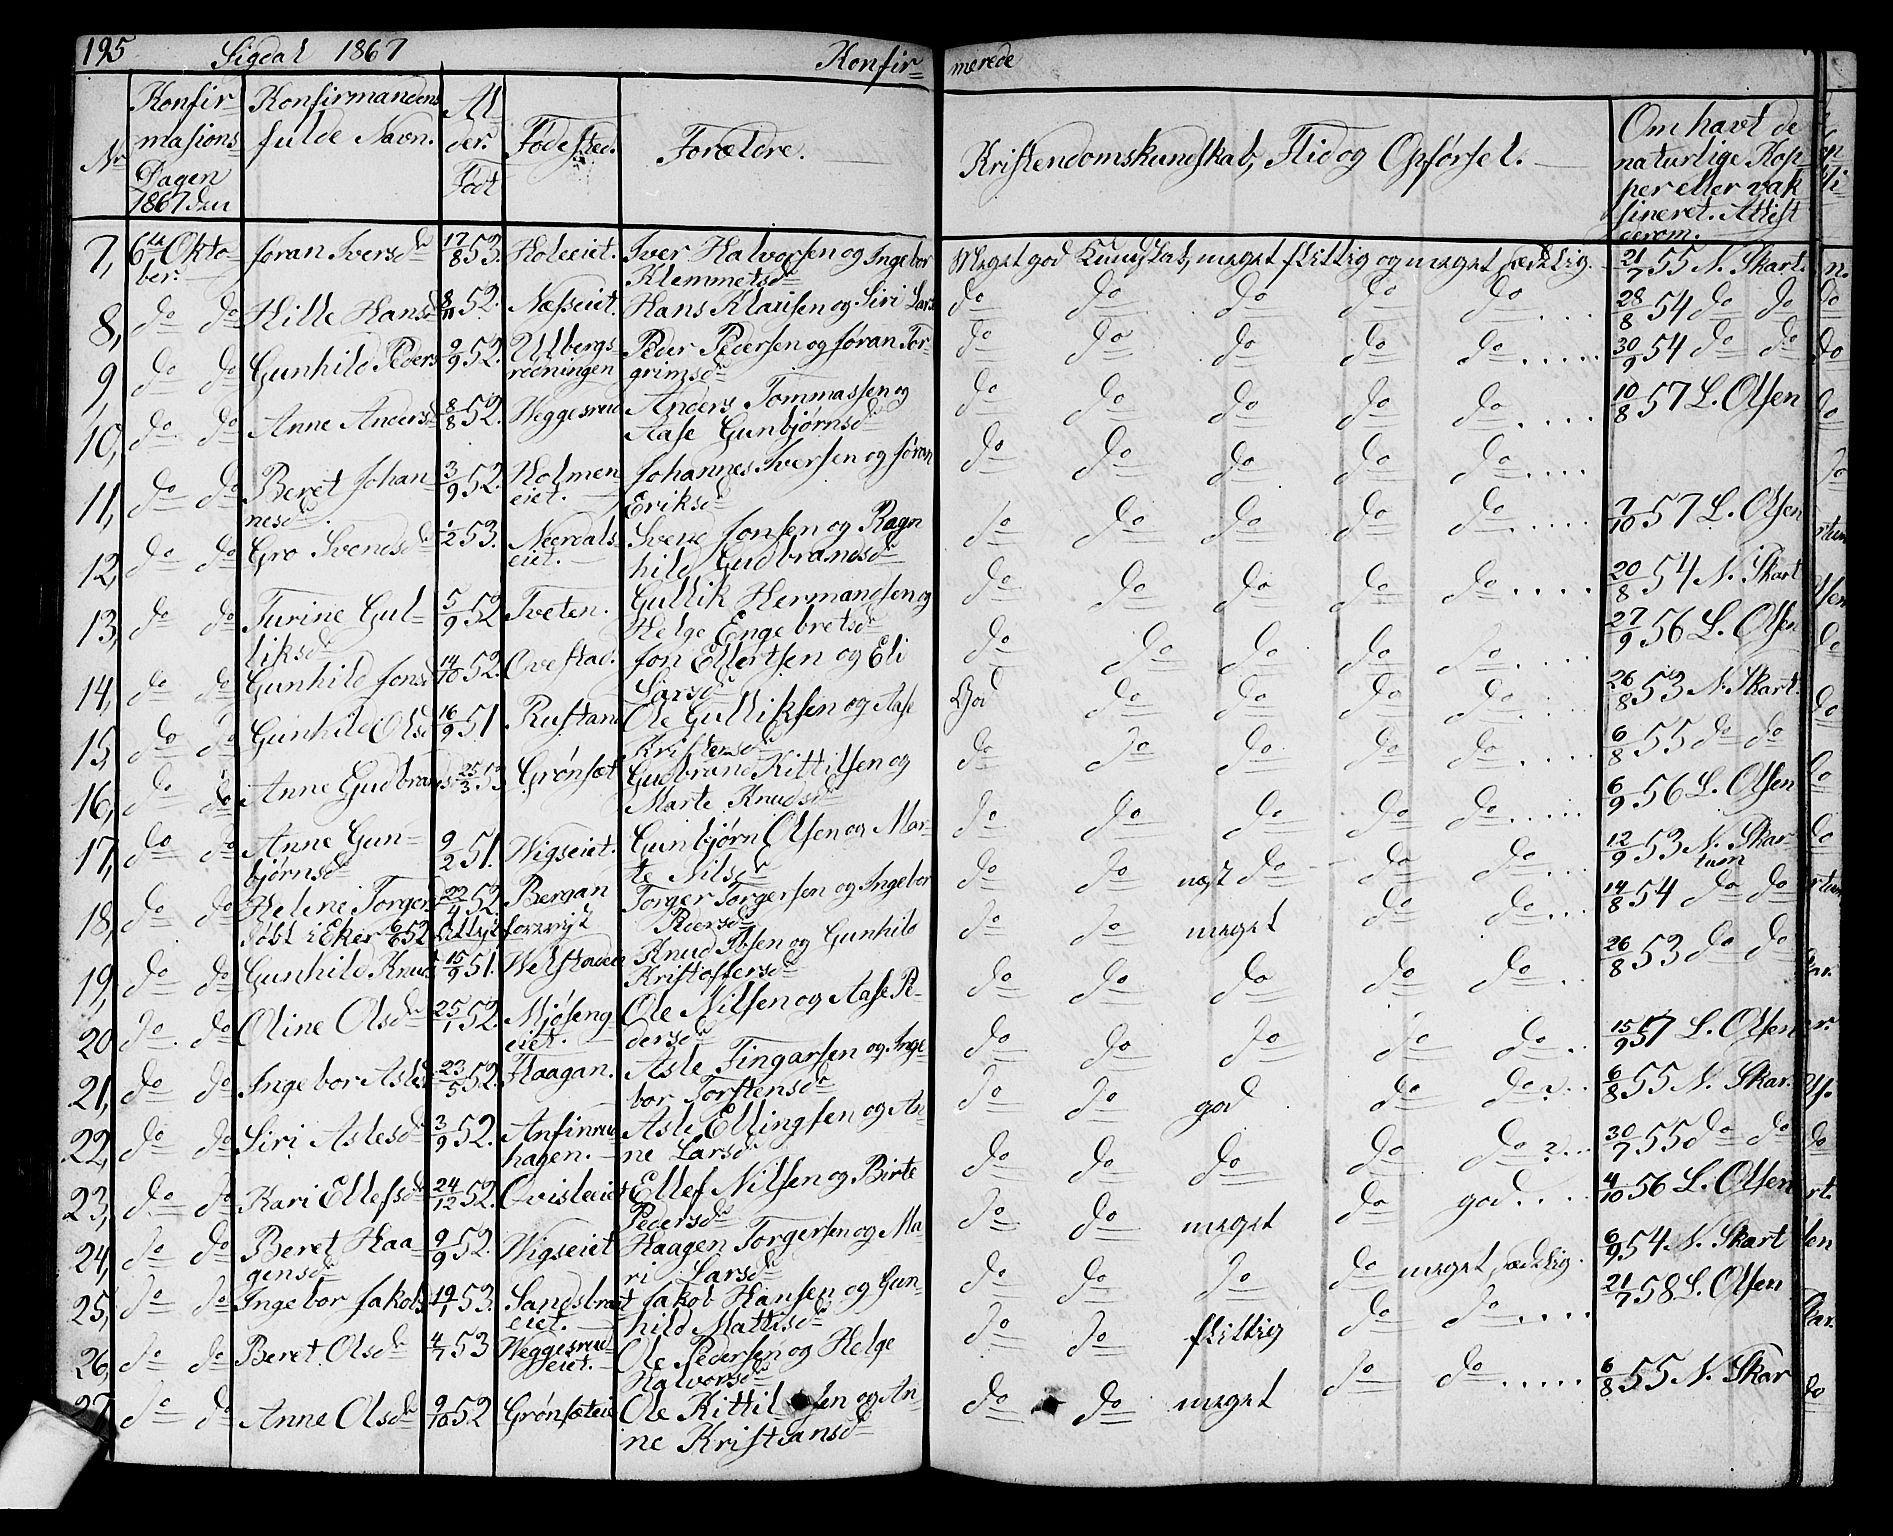 195 Sigdal 1867 Konfir= merede
Nr Konfir= masions= Dagen 1867 den
Konfirmandens fulde Navn.
Al der. Født
Fødested.
Forældre.
Kristendomskundskab, Flid og Opførsel.
Om havt de naturlige Kopper eller vaksineret. Attest derom.
7, 6te Oktober. Jøran Iversdr 17/8 53. Holeeiet. Iver Halvorsen og Ingebor Klemmetsdr Meget god Kundskab, meget flittig og meget sædelig. 21/7 55 N. Skart.
8, do do Hille Hansdr 8/11 52. Næseiet. Hans Klausen og Siri Lars do do do do do.... 28/8 54 do do
9, do do Gunhild Peders 9/9 52. Ulbergs rødningen Peder Pedersen og Jøran Torgrimsdr do do do do do..... 30/9 54 do do
10, do do Anne Andersd 8/8 52. Weggesrud Anders Tommassen og Aase Gunbjørnsdr do do do do do.... 10/8 57 L. Olsen
11, do do Beret Johannesdr. 3/9 52. Holmen eiet. Johannes Iversen og Jøran Eriksdr do do do do do....
12, do do Gro Svendsdr 1/2 53. Nerdals eiet. Svend Jonsen og Ragnhild Gudbrandsdr do do do do do.... 7/10 57 L. Olsen
13, do do Turine Gulliksdr 5/9 52 Tveten. Gullik Hermandsen og Helge Engebretsdr do do do do do..... 20/8 54 N. Skart
14, do do Gunhild Jonsd 14/10 52. Ovestad. Jon Ellertsen og Eli Larsdr do do do do do.... 27/9 56 L. Olsen
15, do do Gunhild Olsd 16/9 51 Rustand Ole Gulliksen og Aase Kristensdr God do do do do.... 26/8 53 N. Skart.
16, do do Anne Gudbrands 25/3 53 Grønsæt Gudbrand Kittilsen og Marte Knudsdr do do do do do.... 6/8 55 do do
17, do do Anne Gunbjørnsdr 9/2 51. Wigseiet. Gunbjørn Olsen og Marte Nilsdr do do do do do..... 6/9 56 L. Olsen
18, do do Helene Torgers 22/4 52. Bergan Torger Torgersen og Ingebor Pedersdr do do næst do do do... 12/9 53 N. Skartum
døbt i Eker 6/6 52
19, do do Gunhild Knud 15/9 51. Welstaden Knud Ilsen og Gunhild Kristoffersdr do do meget do do... 14/8 54 do do
20 do do Oline Olsdr 25/1 52. Mjøseng eiet. Ole Nilsen og Aase Pedersdr do do do do do.. 26/8 53 do do
21, do do Ingebor Aslesd 23/5 52. Haagan. Asle Fingarsen og Ingebor Torstensdr do do do do do.. 15/9 57 L. Olsen
22, do do Siri Aslesdr 3/9 52. Anfinrud hagen. Asle Ellingsen og Anne Larsdr do do god do do.. 6/8 55 N. Skar.
23, do do Kari Ellefsdr 24/12 52. Qvisleeiet Ellef Nilsen og Birte Pedersdr do do do do do... 30/7 55 do do
24, do do Beret Haagensdr 9/9 52. Wigseiet Haagen Torgersen og Mari Larsdr do do meget do god.... 4/10 56 L. Olsen
25, do do Ingebor Jakobs 19/1 53. Sandsbraat eiet. Jakob Hansen og Gunhild Mattisdr do do do do meget sædelig. 6/9 54 N. Skart
26, do do Beret Olsdr 4/7 53 Weggesrud eiet. Ole Pedersen og Helge Halvorsdr do do flittig do do.... 21/7 58 L. Olsen
27, do do Anne Olsdr 9/10 52 Grønsæteie Ole Kittilsen og Anne Kristiansdr do do meget do do..... 6/8 55 N. Skar